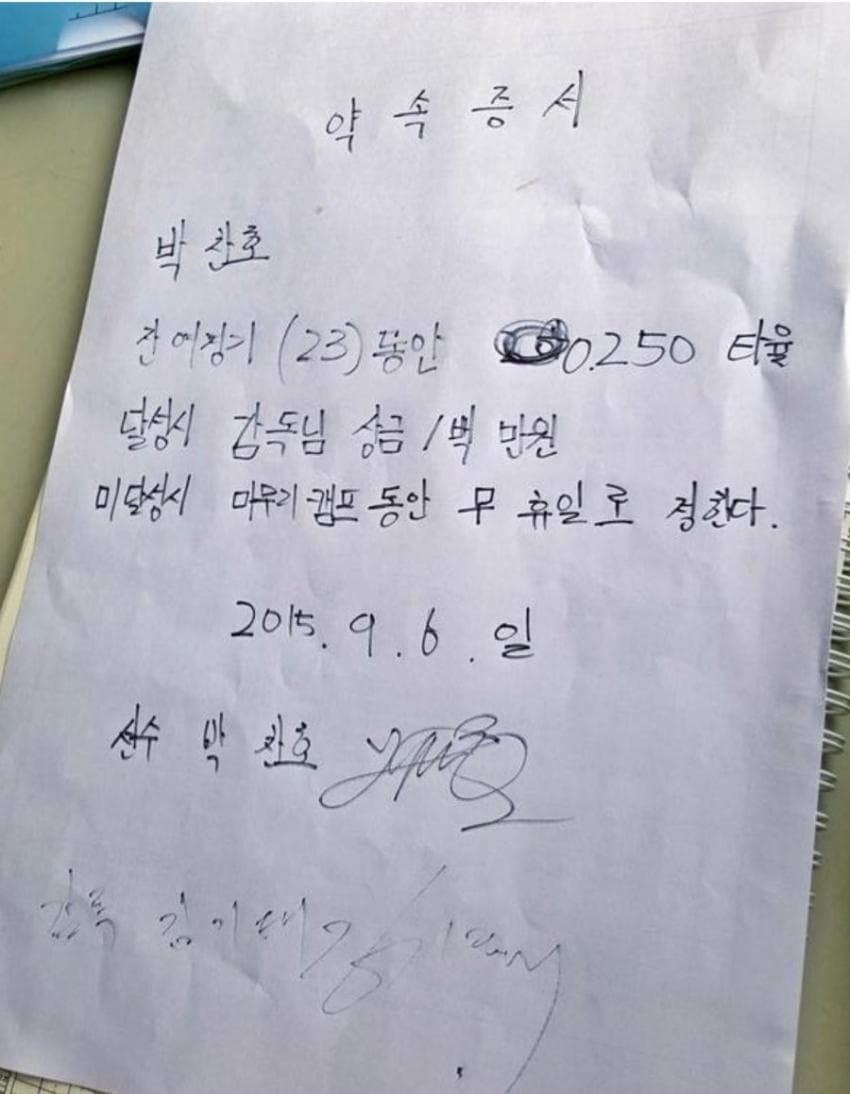 약속증서
박찬호
잔여경기 (23) 동안 0.250 타율
달성시 감독님 상금 /백 만원
미달성시 마무리 캠프 동안 무 휴일로 정한다.
2015. 9. 6. 일
선수 박 찬호
감독 김기태